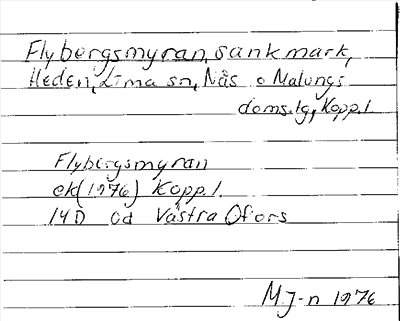 Flybergsmyran, sankmark,
Heden, Lima sn, Nås o Malungs
doms.lg, Kopp.l.
Flybergsmyran
ek(1976) Kopp.l.
14D 0d Västra Ofors
MJ-n 1976